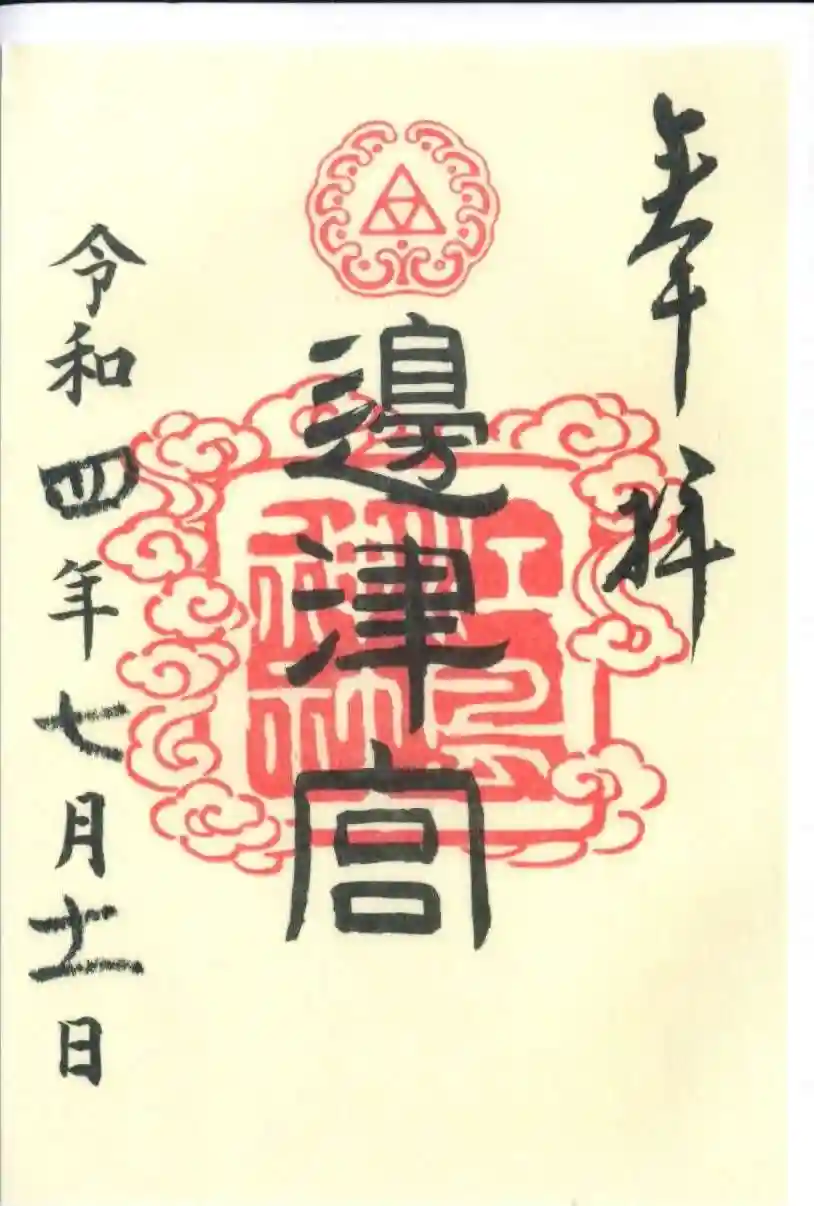 奉拝
邊津宮
令和四年七月十二日